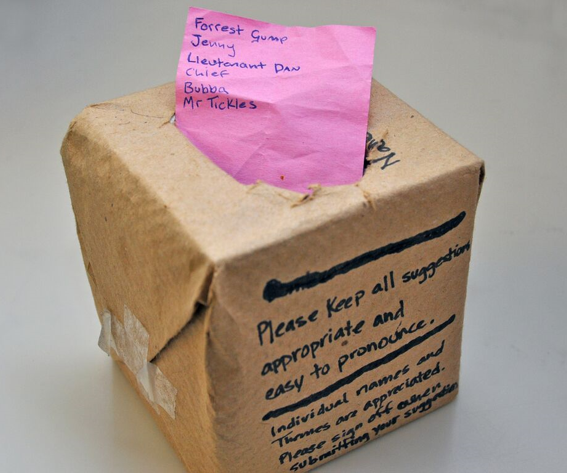 Forrest Gump
Jenny
Lieutenant Dan
Chief
Bubba
Mr Tickles
Please keep all suggestions
appropriate and
easy to pronounce.
Individual names and
Themes are appreciated.
Please sign off when
submitting your suggestion